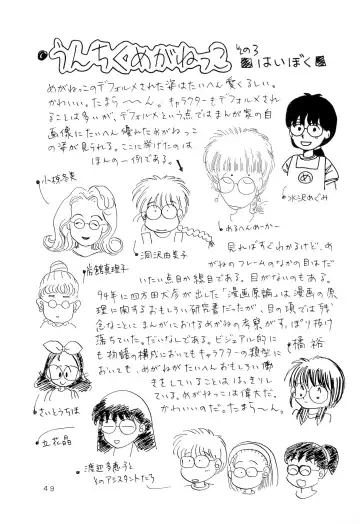 うんちくめがねっこ
その3
はいぼく
めがねっこのデフォルメされた姿はたいへん愛くるしい。
かわいい。たまら〜〜ん。キャラクターもデフォルメされ
ることは多いが、デフォルメという点ではまんが家の自
画像にたいへん優れためがねっこ
の姿が見られる。ここに挙げたのは
ほんの一例である。
小椋冬美
洞沢由美子
あるへんめーかー
水沢めぐみ
岩館真理子
見ればすぐわかるけど、め
がねのフレームのなかの目はだ
いたい点目か線目である。目がないのもある。
94年に四方田犬彦が出した「漫画原論」は漫画の原
理に関するおもしろい研究書だったが、目の項では残
念なことにまんがにおけるめがねの考察がすっぽり抜け
落ちていた。だいなしである。ビジュアル的に
も物語の構成においてもキャラクターの類型に
おいても、めがねがたいへんおもしろい働
きをしていることははっきりし
ている。めがねっこは偉大だ。
かわいいのだ。たまら〜ん。
橘裕
さいとうちほ
立花晶
渡辺多恵子と
そのアシスタントたち
49